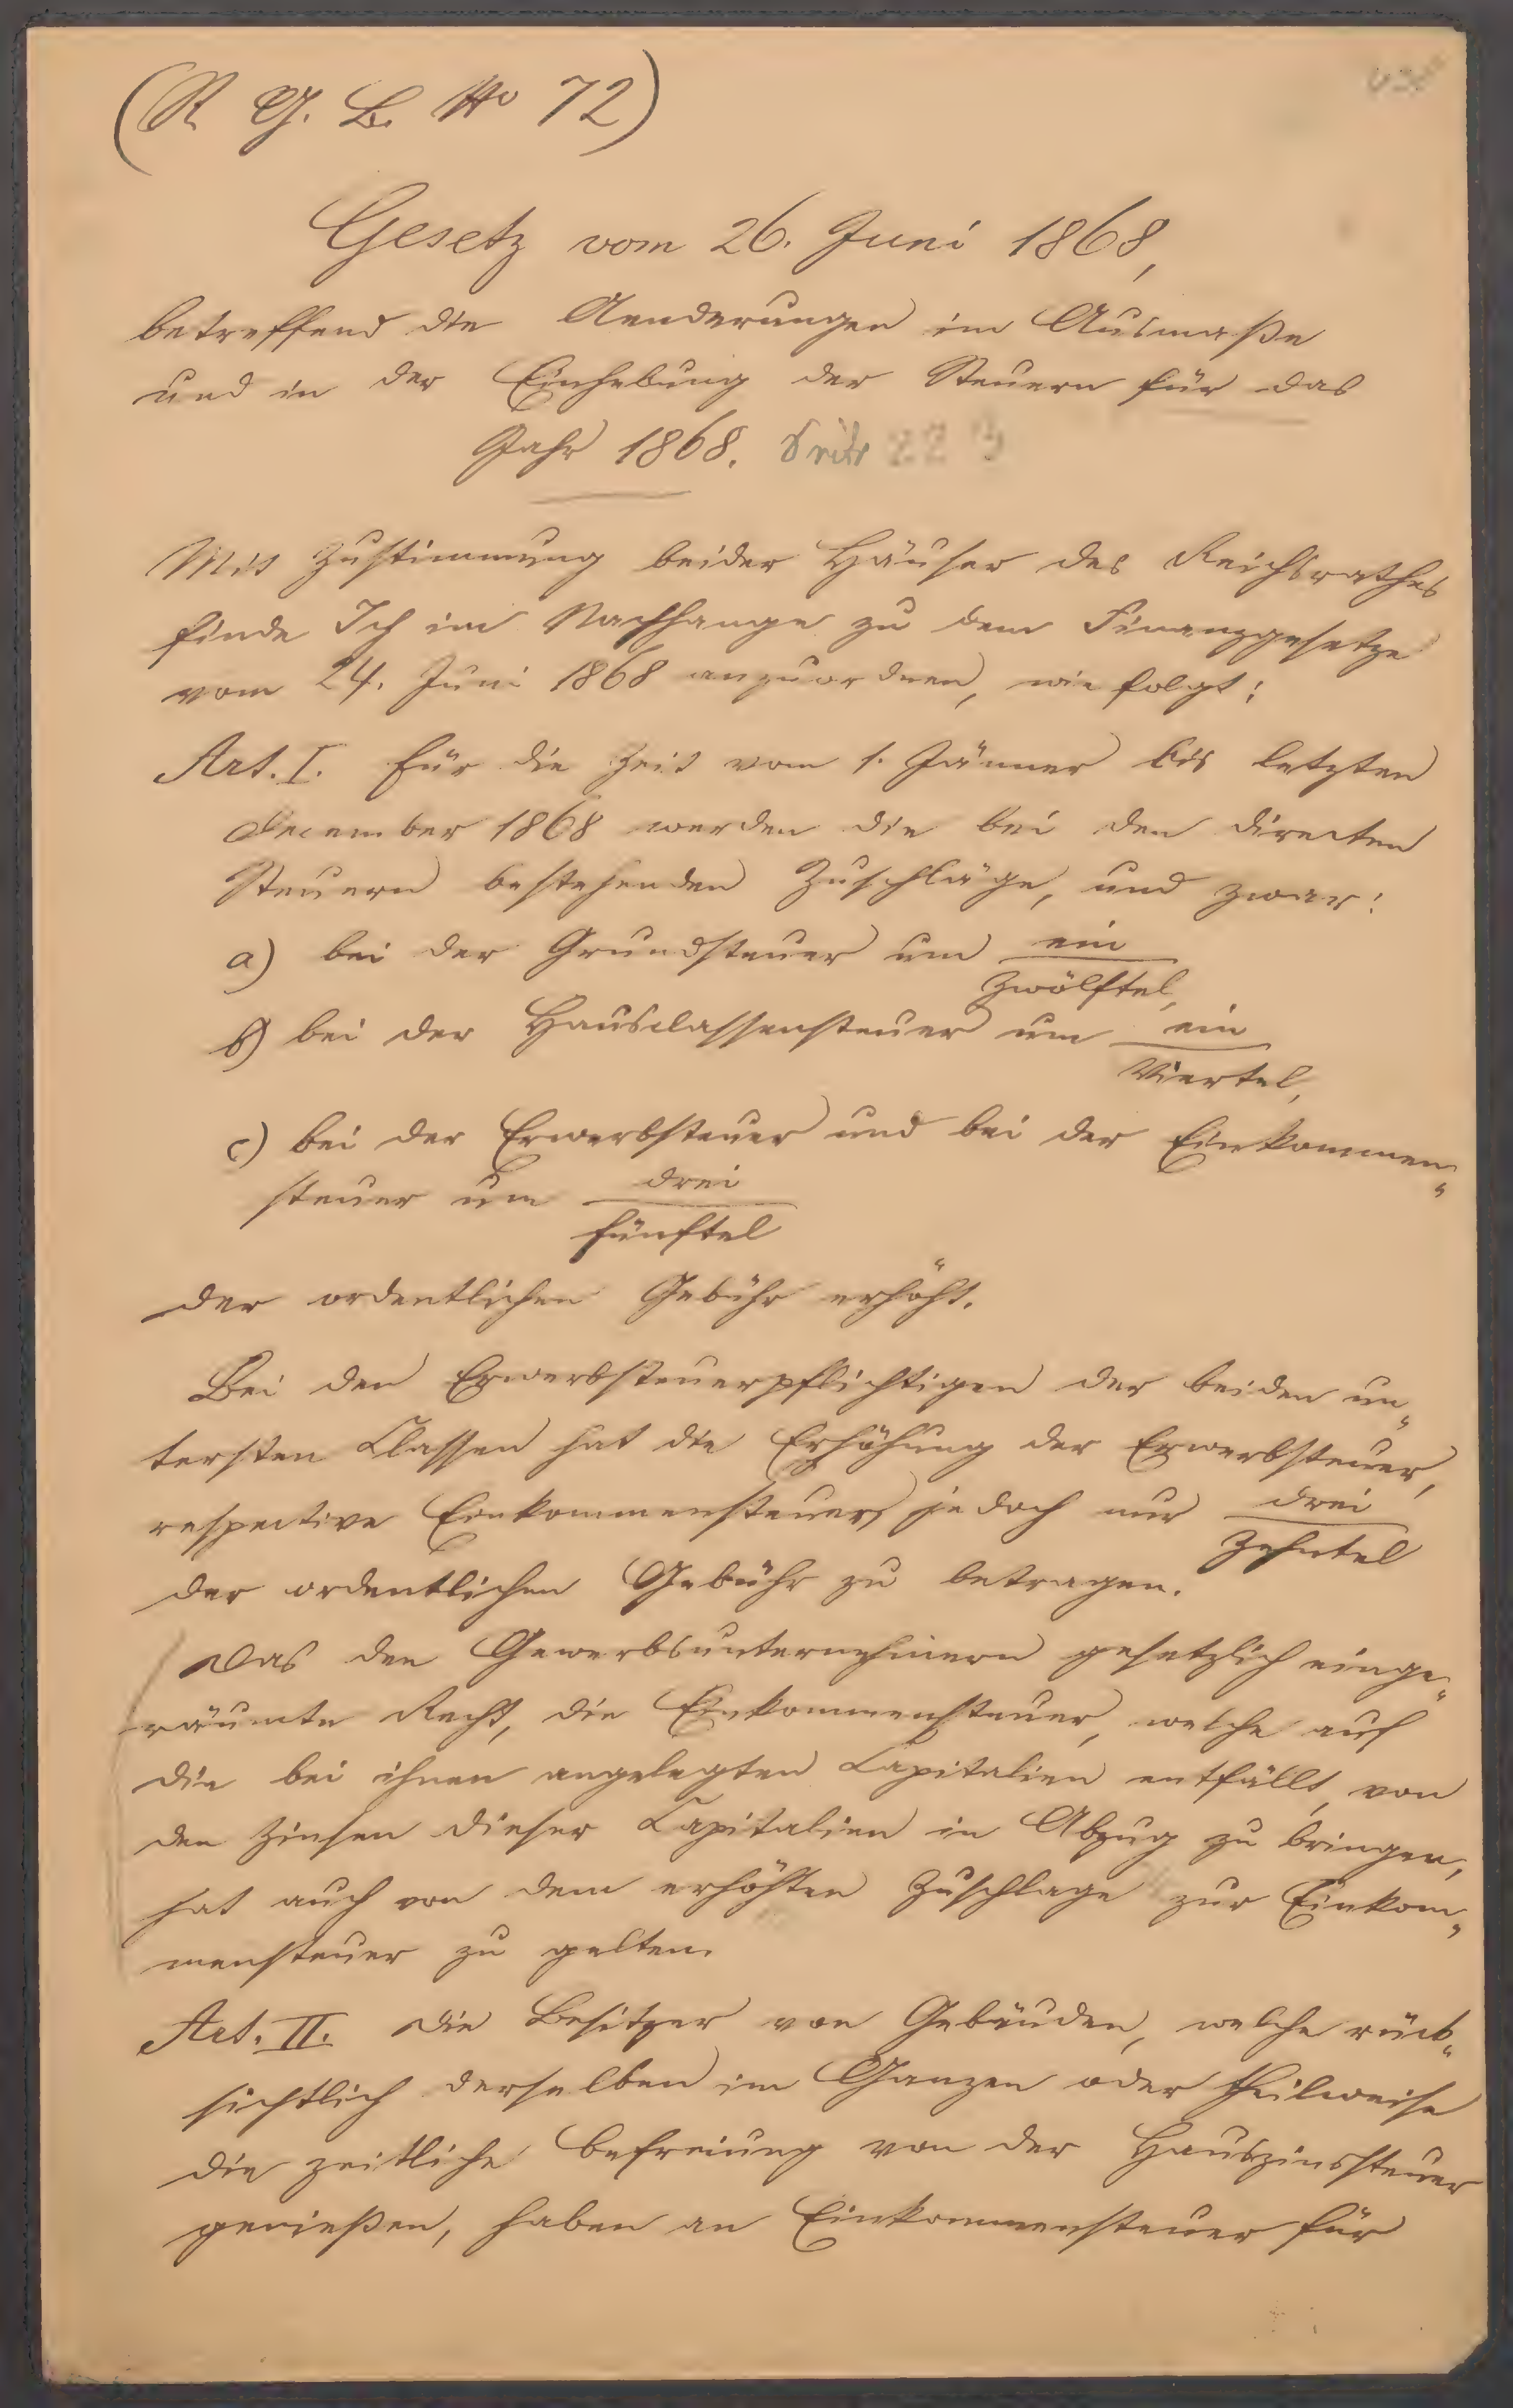 (R. G. B. No 72)
Gesetz vom 26. Juni 1868,
betreffend die Aenderungen im Ausmaße
und in der Einhebung der Steuern für das
Jahr 1868. Seite 223
Mit Zustimmung beider Häuser des Reichsrathes
finde Ich im Nachhange zu dem Finanzgesetze
vom 24. Juni 1868 anzuordnen, wie folgt:
Art. I. Für die Zeit vom 1. Jänner bis letzten
December 1868 werden die bei den directen
Steuern bestehenden Zuschläge, und zwar:
a) bei der Grundsteuer um ein
Zwölftel,
b) bei der Hausclassensteuer um ein
Viertel,
c) bei der Erwerbsteuer und bei der Einkommen„
steuer um drei
fünftel
der ordentlichen Gebühr erhöht.
Bei den Erwerbsteuerpflichtigen der beiden un„
tersten Classen hat die Erhöhung der Erwerbsteuer,
respective Einkommensteuer, jedoch nur drei
Zehntel
der ordentlichen Gebühr zu betragen.
Das den Gewerbsunternehmern gesetzlich einge„
räumte Recht, die Einkommensteuer, welche auf
die bei ihnen angelegten Capitalien entfällt, von
den Zinsen dieser Capitalien in Abzug zu bringen,
hat auch von dem erhöhten Zuschlage zur Einkom„
mensteuer zu gelten.
Art. II. Die Besitzer von Gebäuden, welche rück„
sichtlich derselben im Ganzen oder theilweise
die zeitliche Befreiung von der Hauszinssteuer
genießen, haben an Einkommensteuer für